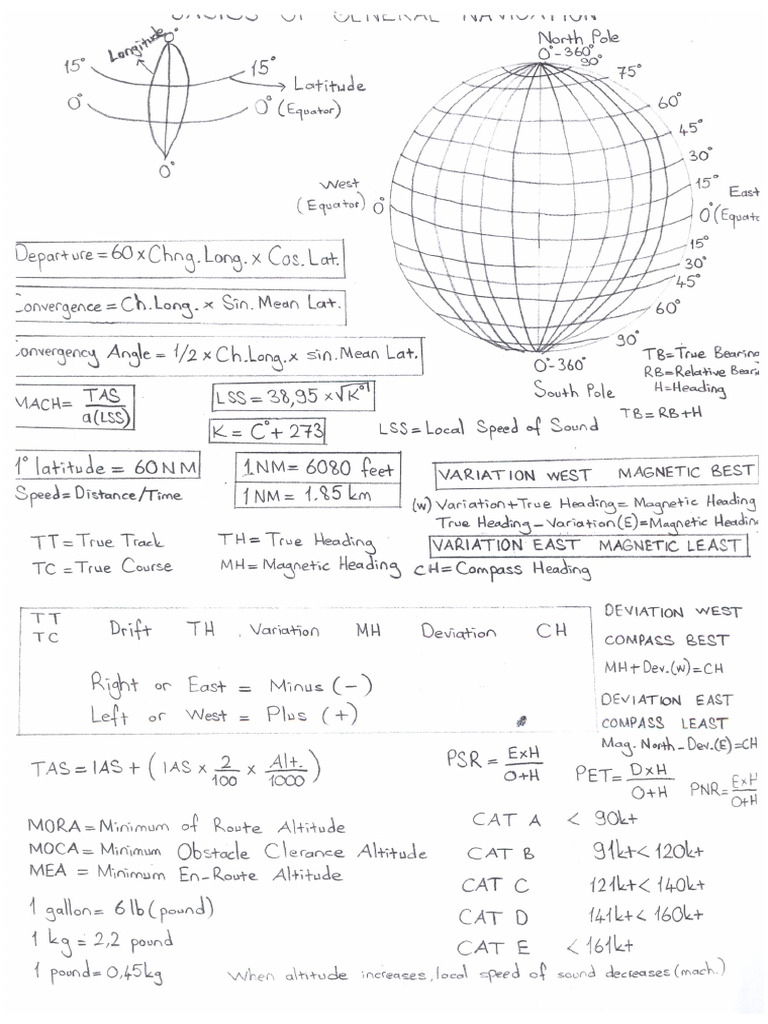 BASICS OF GENERAL NAVIGATION
Longitude 0°
15° 15°
Latitude
0° 0° (Equator)
0°
North Pole
0°-360°
90°
75°
60°
45°
30°
15°
West East
(Equator) 0° 0° (Equato
15°
30°
45°
60°
90°
0°-360°
South Pole
Departure = 60 x Chng. Long. x Cos. Lat.
Convergence = Ch. Long. x Sin. Mean Lat.
Convergency Angle = 1/2 x Ch. Long. x sin. Mean Lat.
TB = True Bearing
RB = Relative Beari
H = Heading
TB = RB + H
MACH = TAS / a(LSS)
LSS = 38,95 x √K°
K = C° + 273
LSS = Local Speed of Sound
1° latitude = 60 NM
1 NM = 6080 feet
1 NM = 1.85 km
Speed = Distance/Time
VARIATION WEST MAGNETIC BEST
(W) Variation + True Heading = Magnetic Heading
True Heading - Variation (E) = Magnetic Headin
VARIATION EAST MAGNETIC LEAST
TT = True Track TH = True Heading
TC = True Course MH = Magnetic Heading CH = Compass Heading
TT
TC Drift TH , Variation MH Deviation CH
Right or East = Minus (-)
Left or West = Plus (+)
DEVIATION WEST
COMPASS BEST
MH + Dev. (W) = CH
DEVIATION EAST
COMPASS LEAST
Mag. North - Dev. (E) = CH
TAS = IAS + (IAS x 2/100 x Alt./1000)
PSR = ExH / O+H
PET = DxH / O+H
PNR = ExH / O+H
MORA = Minimum of Route Altitude
MOCA = Minimum Obstacle Clerance Altitude
MEA = Minimum En-Route Altitude
1 gallon = 6 lb (pound)
1 kg = 2,2 pound
1 pound = 0,45 kg
CAT A < 90kt
CAT B 91kt < 120kt
CAT C 121kt < 140kt
CAT D 141kt < 160kt
CAT E < 161kt
When altitude increases, local speed of sound decreases (mach.)